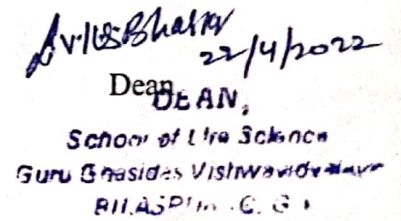 22/4/2022
Dean
DEAN,
School of Life Science
Guru Ghasidas Vishwavidyalaya
BILASPUR C. G.